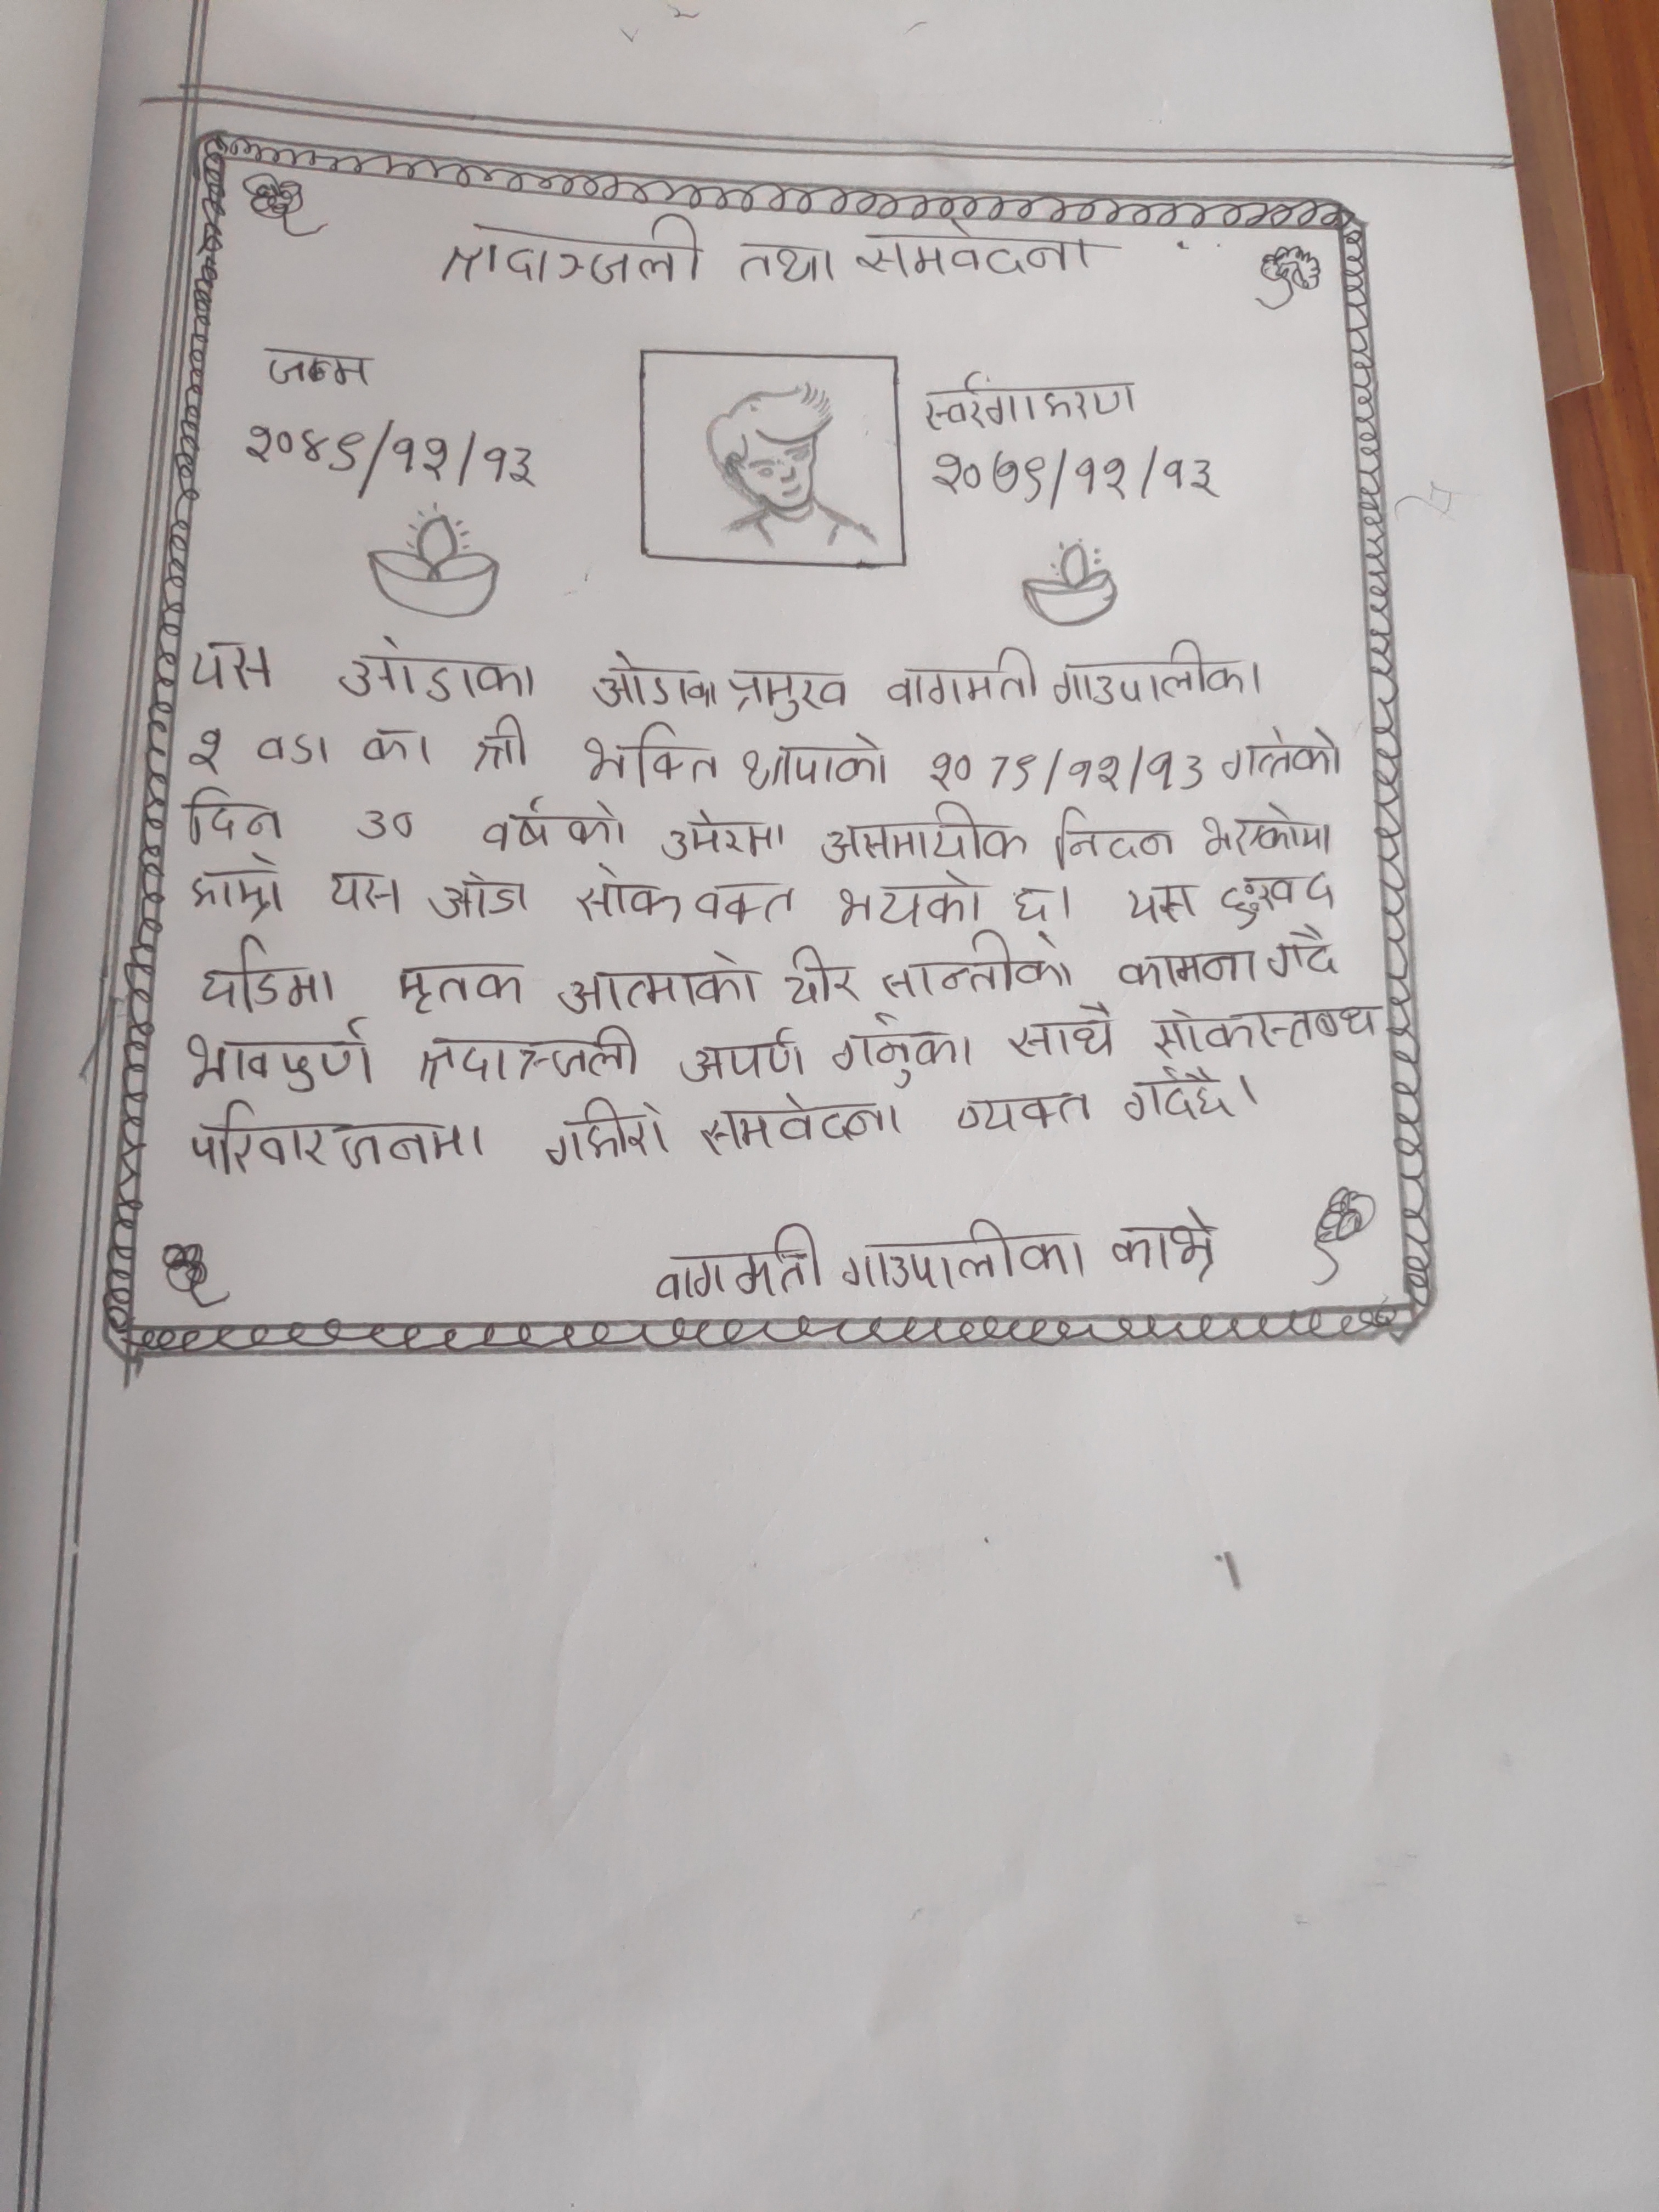 श्रदाञ्जली तथा समवेदना
जन्म
स्वर्रगाहरण
२०४९/१२/१३
२०७९/१२/१३
यस ओडाका ओडाका प्रमुख वागमती गाउपालीका
२ वडा का श्री भक्ति थापाको २०७९/१२/१३ गतेको
दिन ३० वर्षको उमेरमा असमायीक निदन भएकोमा
हाम्रो यस ओडा सोक वक्त भयको छ। यस दुःखद
घडिमा मृतक आत्माको चीर सान्तीको कामना गर्दै
भावपुर्ण श्रदाञ्जली अपर्ण गर्नुका साथै सोकस्तब्ध
परिवारजनमा गहीरो समवेदना व्यक्त गर्दछै।
वागमती गाउपालीका काभ्रे